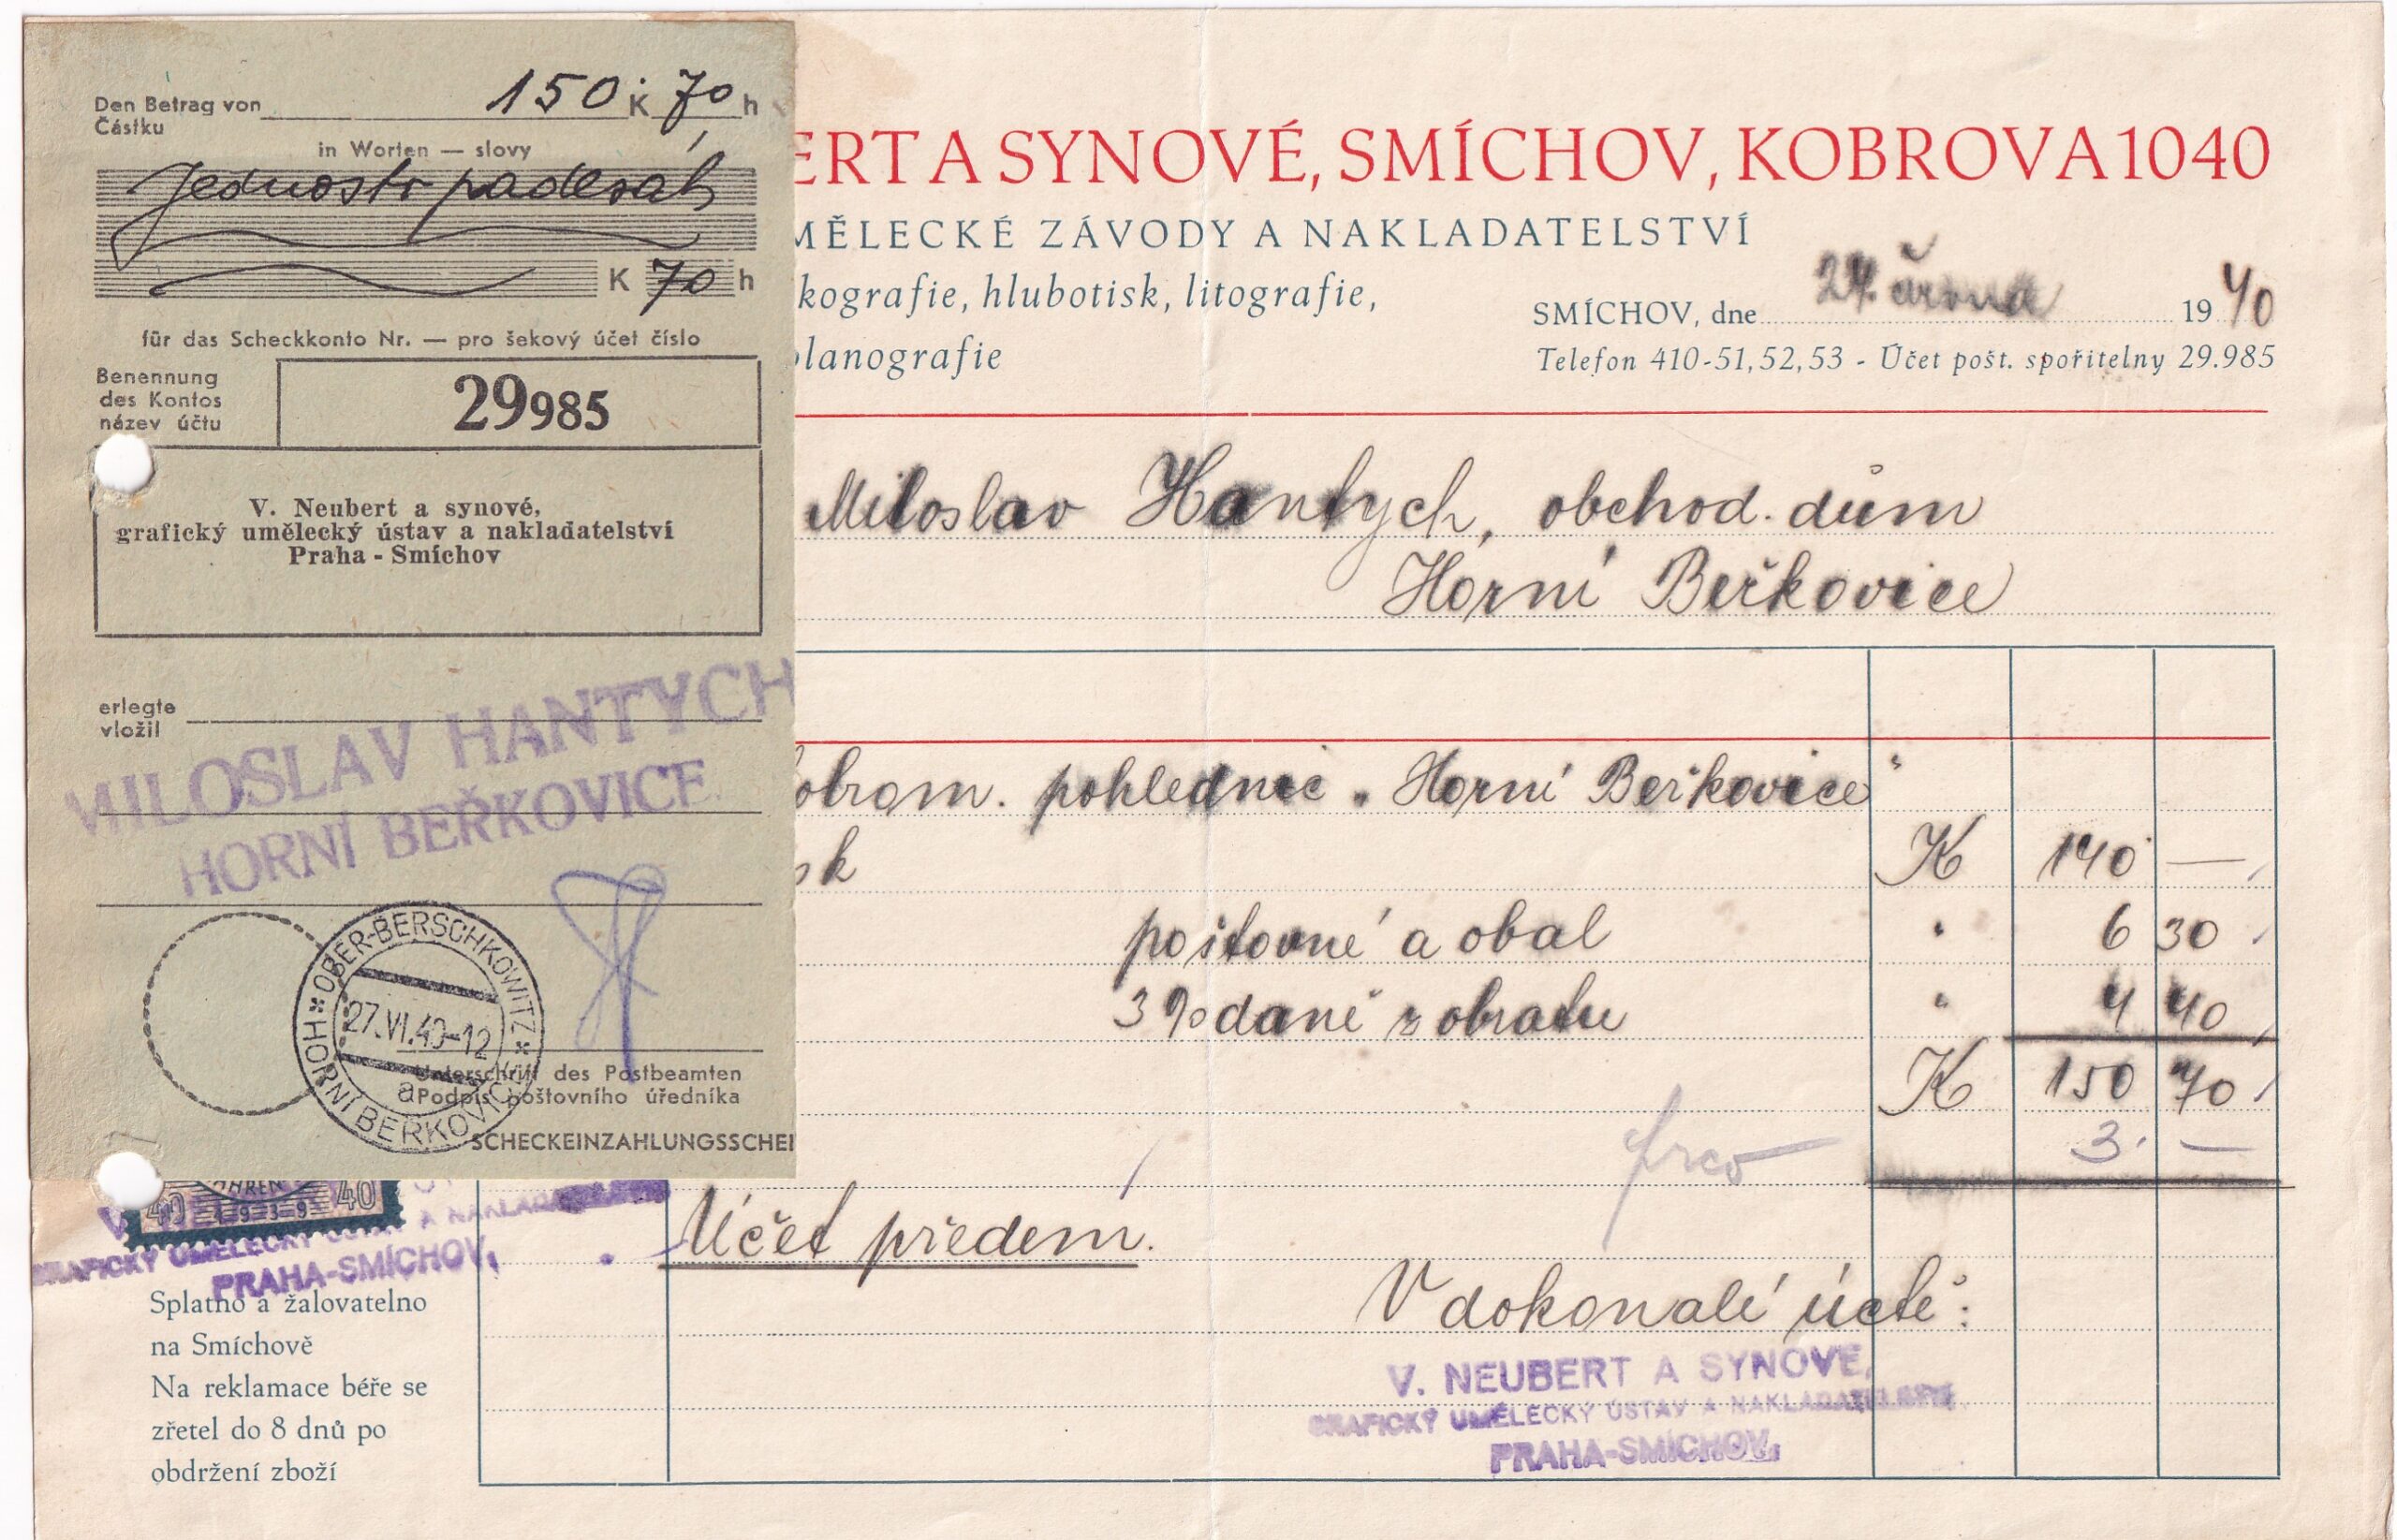 Den Betrag von 150 K 70 h
Částku
in Worten — slovy
Jednosto padesát
K 70 h
für das Scheckkonto Nr. — pro šekový účet číslo
Benennung
des Kontos
název účtu
29985
V. Neubert a synové,
grafický umělecký ústav a nakladatelství
Praha - Smíchov
erlegte
vložil
MILOSLAV HANTYCH
HORNÍ BEŘKOVICE
OBER-BERSCHKOWITZ
27.VI.40-12
a
HORNÍ BEŘKOVICE
Unterschrift des Postbeamten
Podpis poštovního úředníka
SCHECKEINZAHLUNGSSCHEI
ERT A SYNOVÉ, SMÍCHOV, KOBROVA 1040
MĚLECKÉ ZÁVODY A NAKLADATELSTVÍ
kografie, hlubotisk, litografie,
lanografie
SMÍCHOV, dne 24. června 1940
Telefon 410-51,52,53 - Účet pošt. spořitelny 29.985
Miloslav Hantych, obchod. dům
Horní Beřkovice
obrom. pohlednic „Horní Beřkovice"
sk K 140 —
poštovné a obal " 6 30
3% daně z obratu " 4 40
K 150 70
frco 3. —
Účet předem.
V dokonalé úctě:
V. NEUBERT A SYNOVÉ,
GRAFICKÝ UMĚLECKÝ ÚSTAV A NAKLADATELSTVÍ
PRAHA-SMÍCHOV.
40 1939 40
A NAKLADATELSTVÍ
GRAFICKÝ UMĚLECKÝ
PRAHA-SMÍCHOV,
Splatno a žalovatelno
na Smíchově
Na reklamace béře se
zřetel do 8 dnů po
obdržení zboží